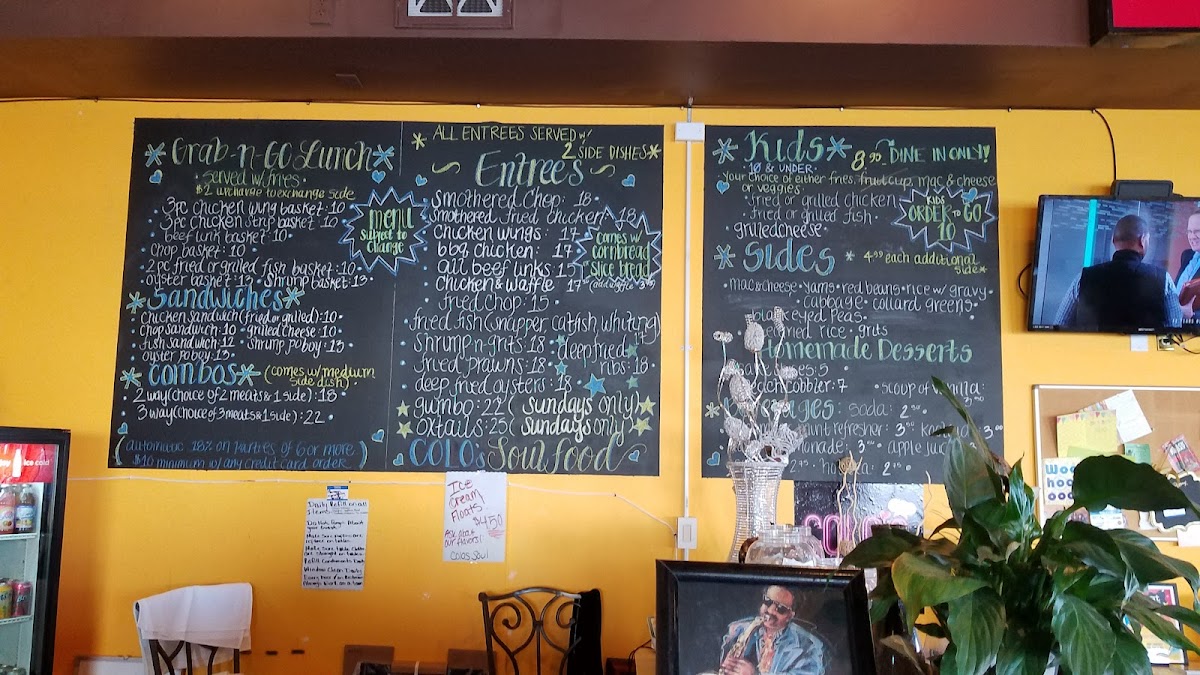 Grab-n-Go Lunch
Served w/ fries
$2 upcharge to exchange side
3pc chicken wing basket: 10
3pc chicken strip basket: 10
beef link basket: 10
chop basket: 10
2pc fried or grilled fish basket: 10
oyster basket: 13 • shrimp basket: 13
menu
subject to
change
Sandwiches
chicken sandwich (fried or grilled): 10
chop sandwich: 10 • grilled cheese: 10
fish sandwich: 12 • shrimp po boy: 13
oyster po boy: 13
Combos (comes w/ medium
side dish)
2 way (choice of 2 meats & 1 side): 18
3 way (choice of 3 meats & 1 side): 22
(automatic 18% on parties of 6 or more
$10 minimum w/ any credit card order)
ALL ENTREES SERVED w/
2 SIDE DISHES
Entrees
smothered chop: 18
smothered fried chicken: 18
chicken wings: 17
bbq chicken: 17
all beef links: 15
chicken & waffle 17
fried chop: 15
comes w/
cornbread
slice bread
fried fish (snapper catfish whiting)
shrimp-n-grits: 18
fried prawns: 18
deep fried oysters: 18
deep fried
ribs: 18
gumbo: 22 (sundays only)
oxtails: 25 (sundays only)
COLO's Soul food
Kids
8.90 DINE IN ONLY!
10 & UNDER
Your choice of either fries, fruit cup, mac & cheese
or veggies
fried or grilled chicken
fried or grilled fish
grilled cheese
KIDS
ORDER to GO
10
Sides
4.00 each additional
side
mac & cheese • yams • red beans • rice w/ gravy
cabbage • collard greens
black eyed peas
fried rice • grits
Homemade Desserts
: 5
cobbler: 7 • scoop of vanilla:
soda: 2.50
refresher: 3.50
3.00
apple juice
2.75
2.00
Ice
Cream
Floats
$4.50
our flavors!
Colos Soul
Daily Refill on all
Items
Refill Condiments Daily
Windows Clean Daily
ice cold
Woo
hoo